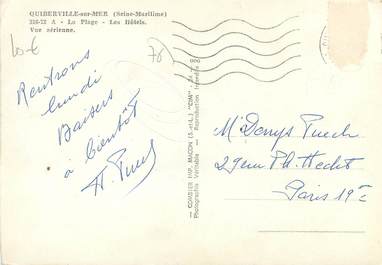 QUIBERVILLE-sur-MER (Seine-Maritime)
316-72 A - La Plage - Les Hôtels.
Vue aérienne.
10 €
76
Rentrons
lundi
Baisers
à bientôt
COMBIER IMP. MACON (S.-et-L.) "CIM"
Photographie Véritable - Reproduction interdite
Mr Denys Puech
29 rue Ph. Hecht
Paris 19e